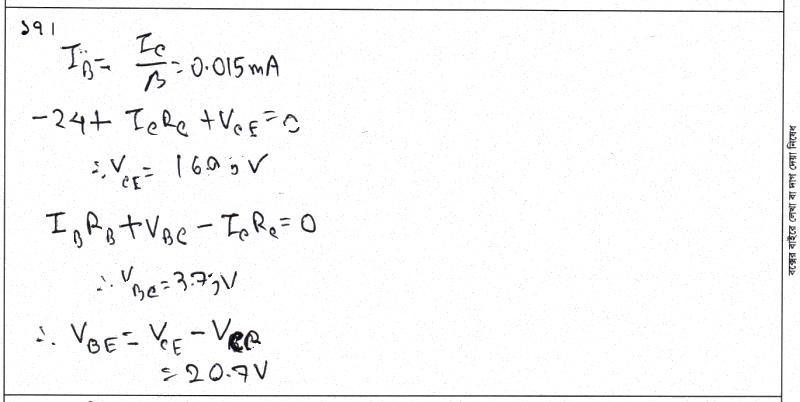 ১৭।
I_B = I_C/β = 0.015mA
-24 + I_C R_C + V_CE = 0
∴ V_CE = V
I_B R_B + V_BC - I_C R_C = 0
∴ V_BC = V
∴ V_BE = V_CE -
= 20.7V
বক্সের বাইরে লেখা বা দাগ দেয়া নিষেধ